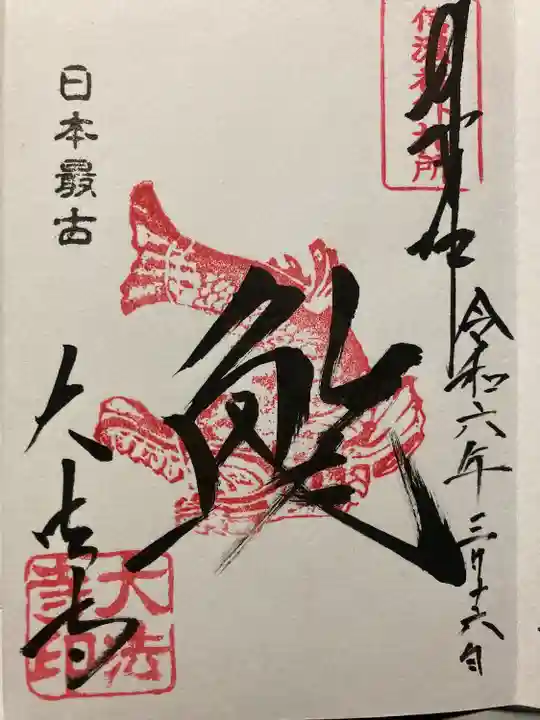 奉拝
令和六年三月十六日
鯱
日本最古
大法寺
大法
寺印